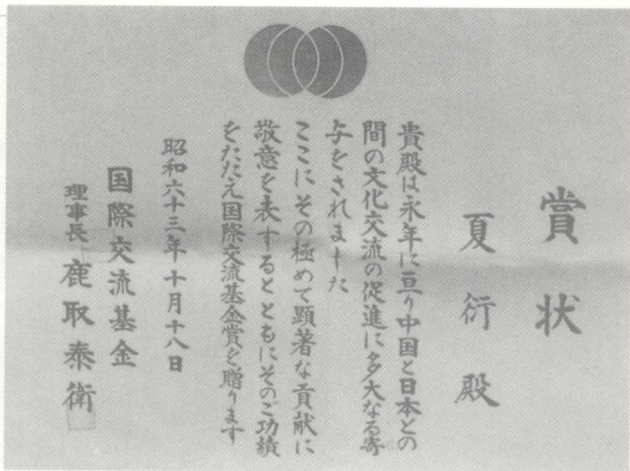 賞状
夏衍殿
貴殿は永年に亘り中国と日本との
間の文化交流の促進に多大なる寄
与をされました
ここにその極めて顕著な貢献に
敬意を表するとともにそのご功績
をたたえ国際交流基金賞を贈ります
昭和六十三年十月十八日
国際交流基金
理事長 鹿取泰衛